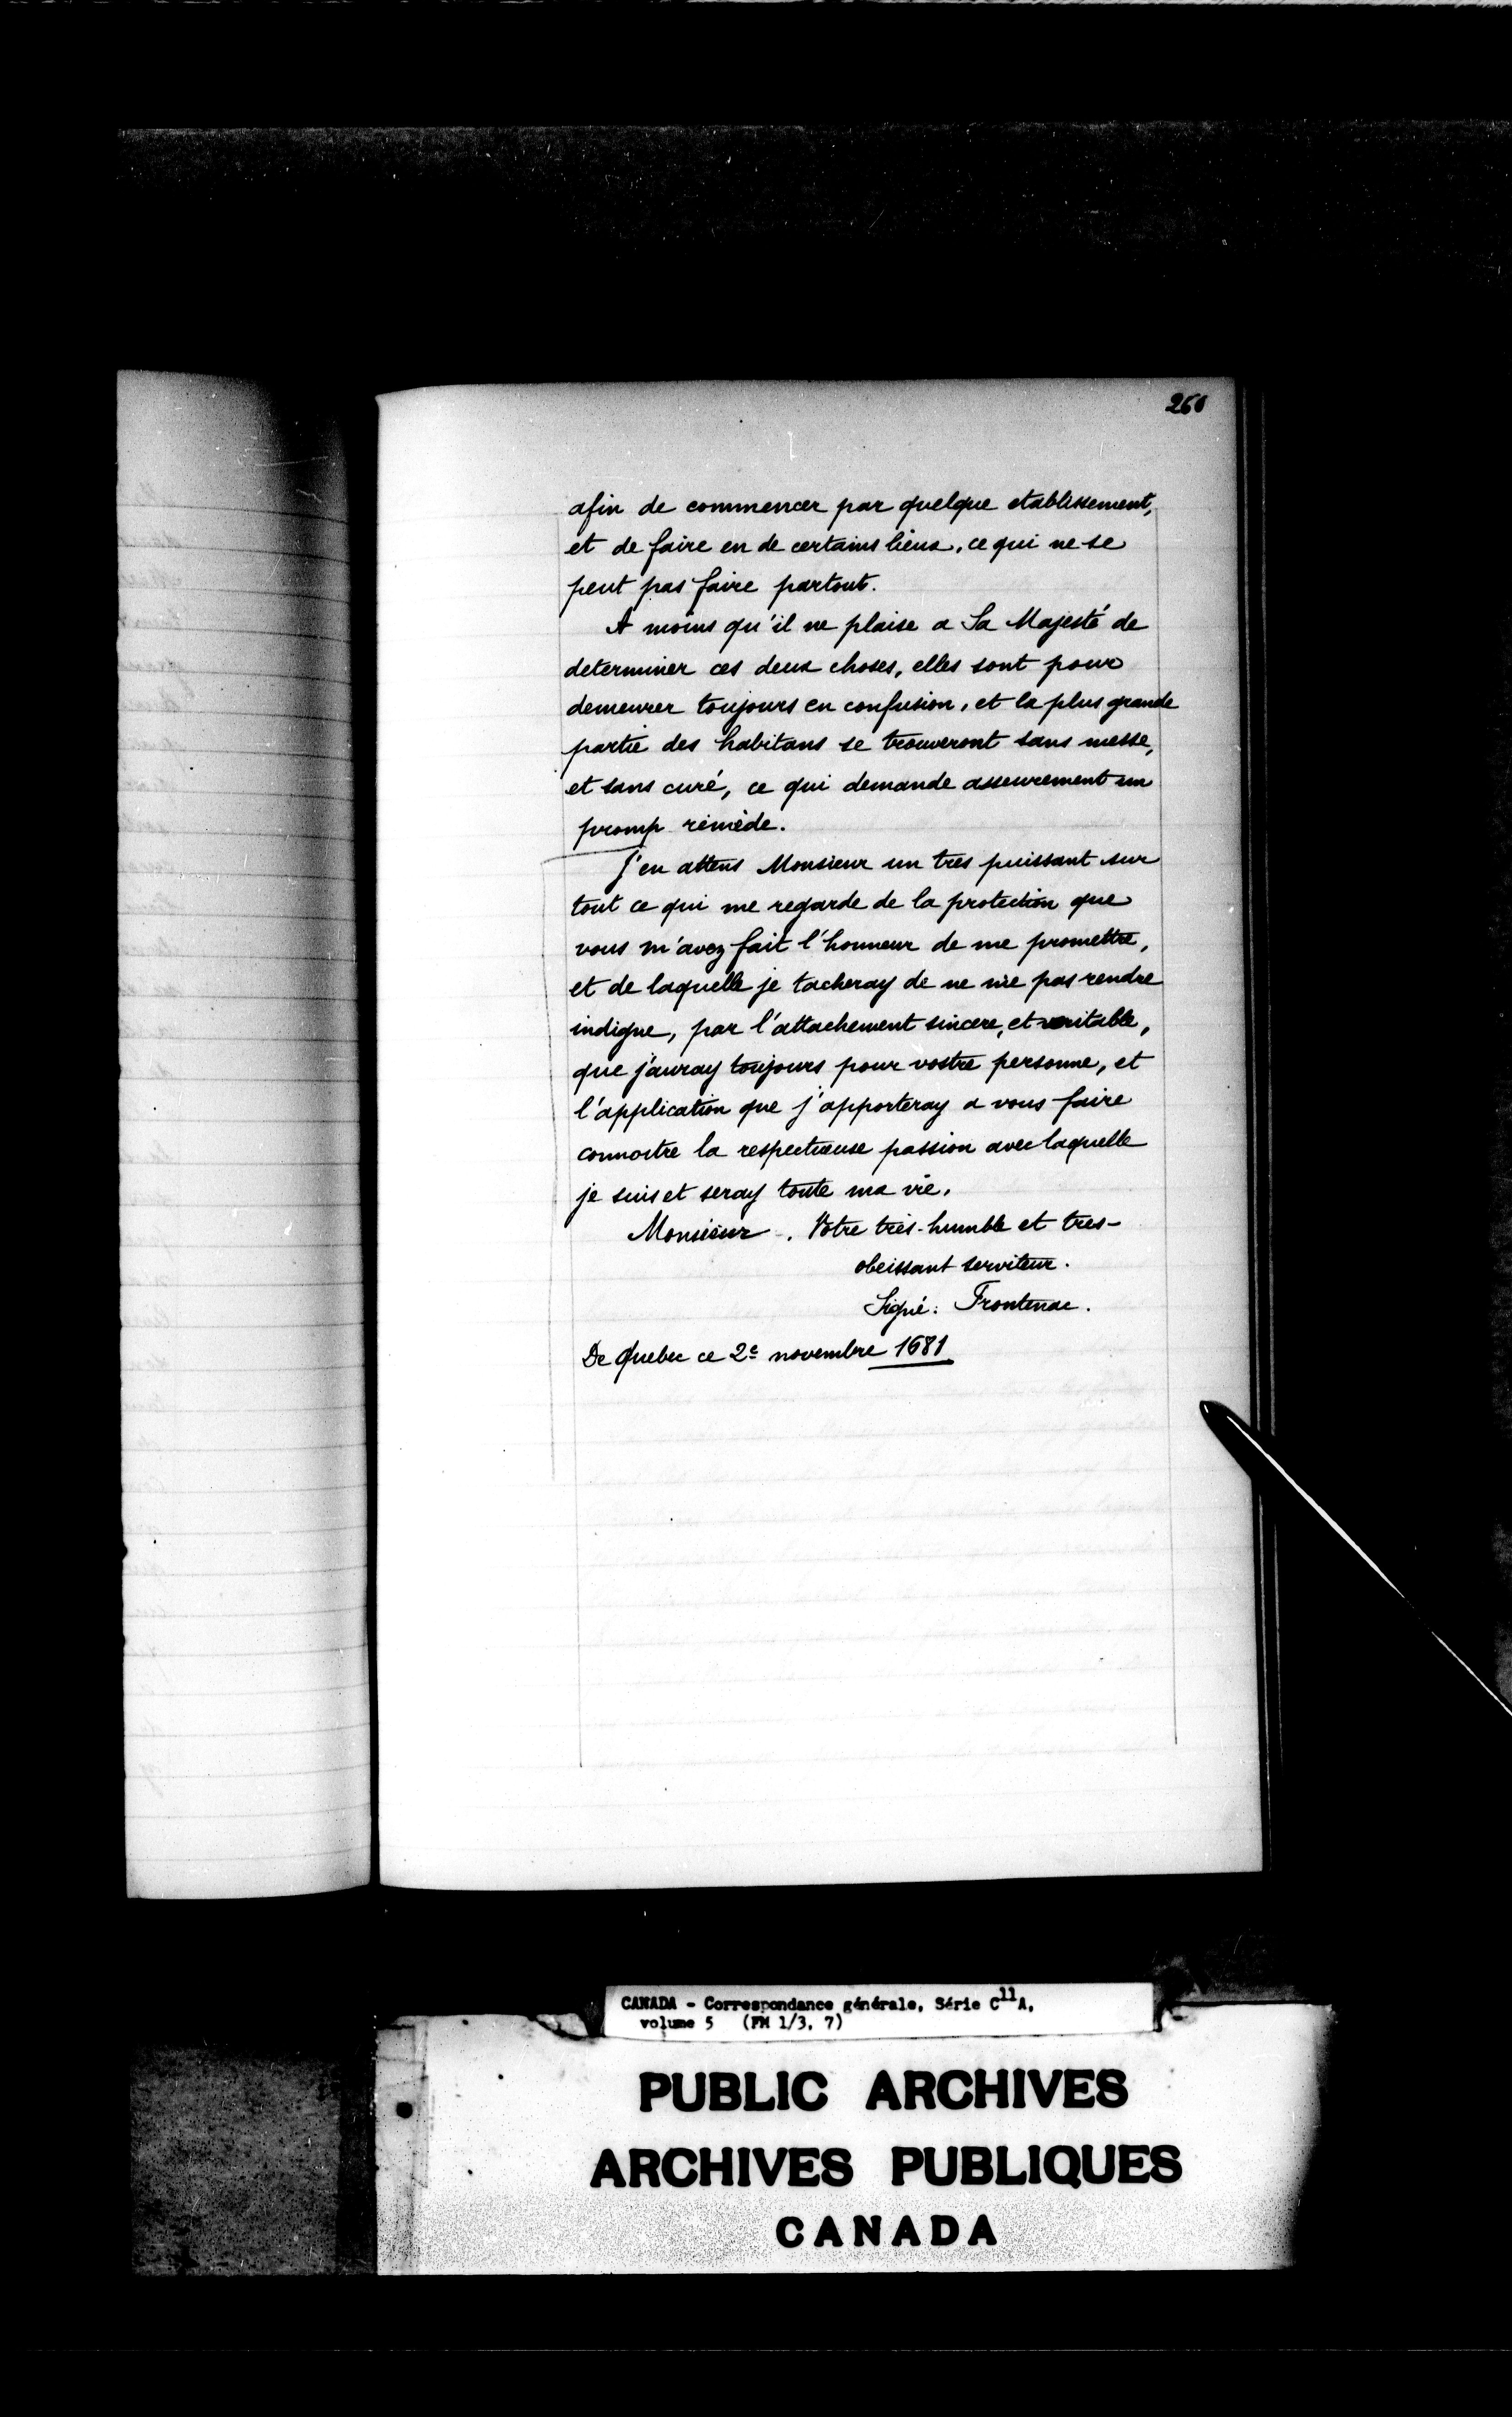 260
afin de commencer par quelque etablissement,
et de faire en de certains lieux, ce qui ne se
peut pas faire partout.
A moins qu'il ne plaise a Sa Majesté de
determiner ces deux choses, elles sont pour
demeurer toujours en confusion, et la plus grande
partie des habitans se trouveront sans messe,
et sans curé, ce qui demande asseurement un
promp remède.
J'en attens Monsieur un tres puissant sur
tout ce qui me regarde de la protection que
vous m'avez fait l'honneur de me promettre,
et de laquelle je tacheray de ne me pas rendre
indigne, par l'attachement sincere, et veritable,
que j'auray toujours pour vostre personne, et
l'application que j'apporteray a vous faire
connoitre la respectueuse passion avec laquelle
je suis et seray toute ma vie.
Monsieur . Votre très-humble et tres-
obeissant serviteur.
Signé: Frontenac.
De Quebec ce 2e novembre 1681
CANADA - Correspondance générale, Série C11A,
volume 5 (FM 1/3, 7)
PUBLIC ARCHIVES
ARCHIVES PUBLIQUES
CANADA